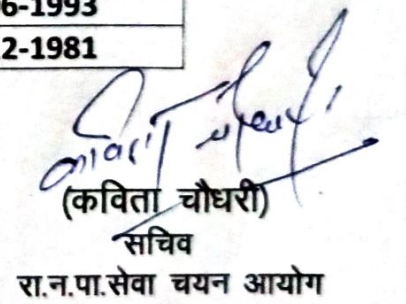 6-1993
2-1981
कविता चौधरी
(कविता चौधरी)
सचिव
रा.न.पा.सेवा चयन आयोग